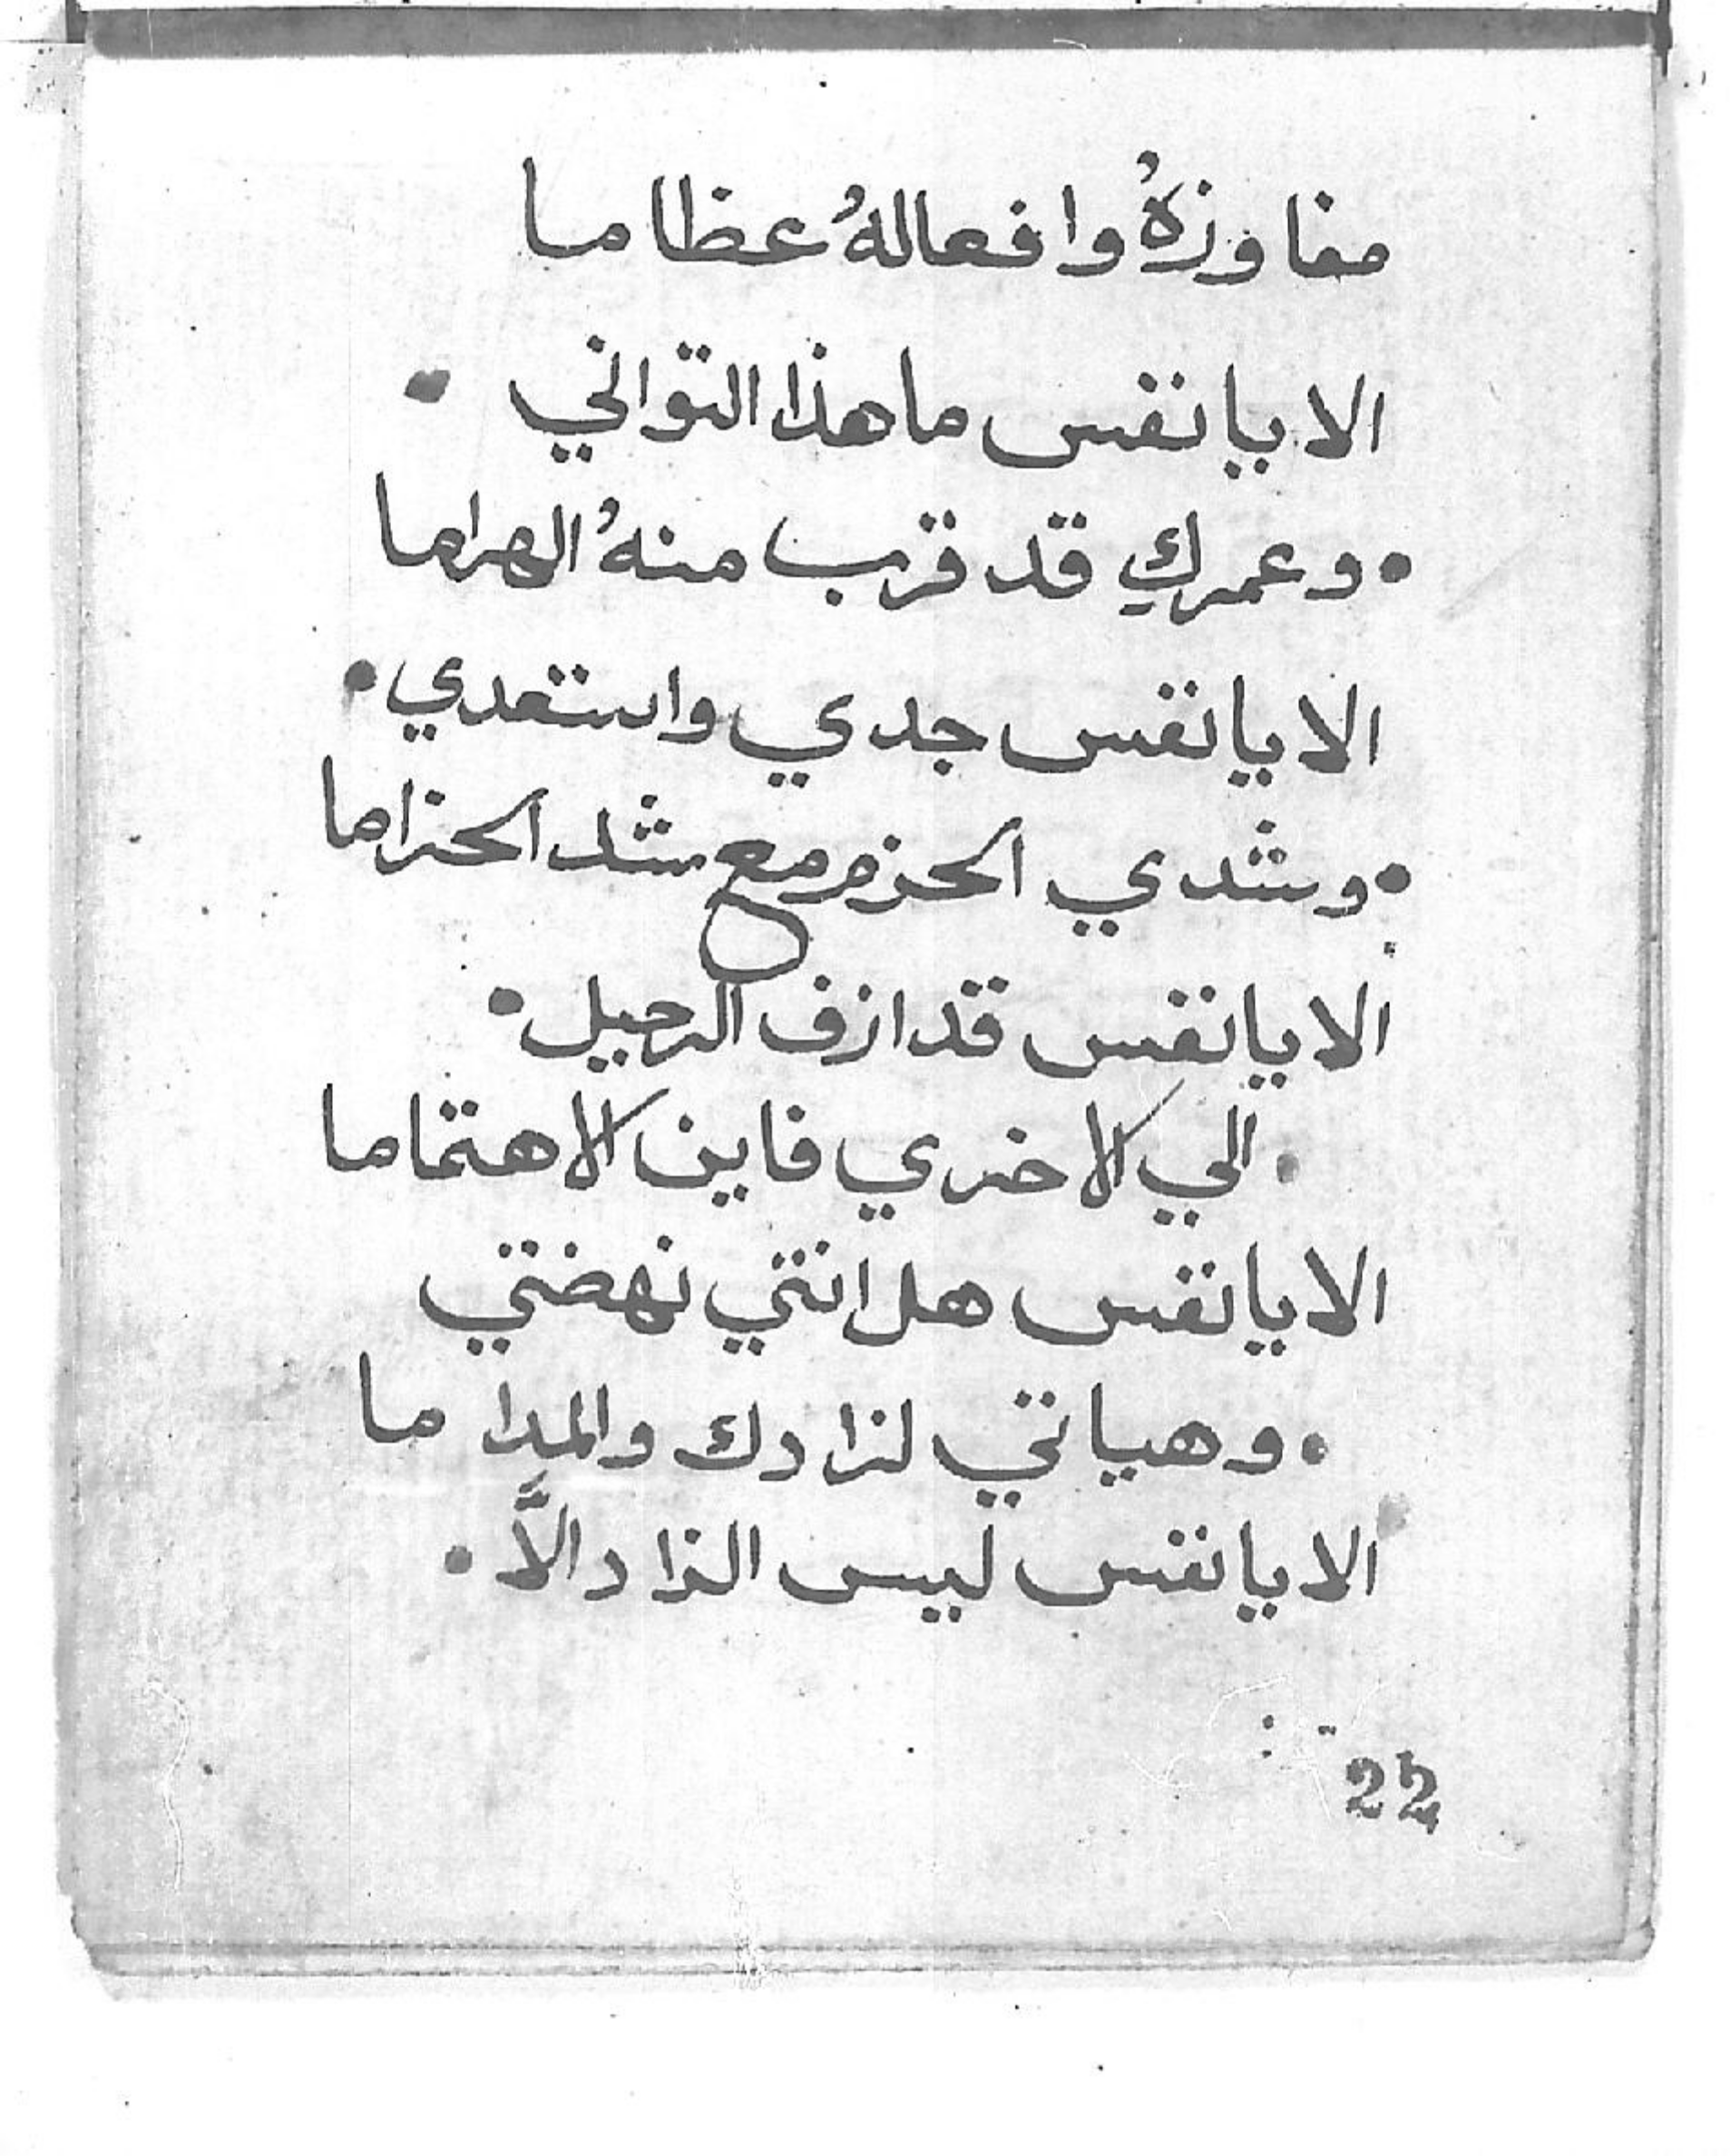 مفاوزهُ وافعالهُ عظاما
الا يا نفس ما هذا التواني •
• وعمركِ قد قرب منهُ الهراما
الا يا نفس جدي واستعدي •
• وشدي الحزم مع شد الحزاما
الا يا نفس قد ازف الرحيل •
• الي الاخري فاين الاهتماما
الا يا نفس هل انتي نهضتي
• وهياتي لزادك والمداما
الا يا نفس ليس الزاد الاَّ •
22